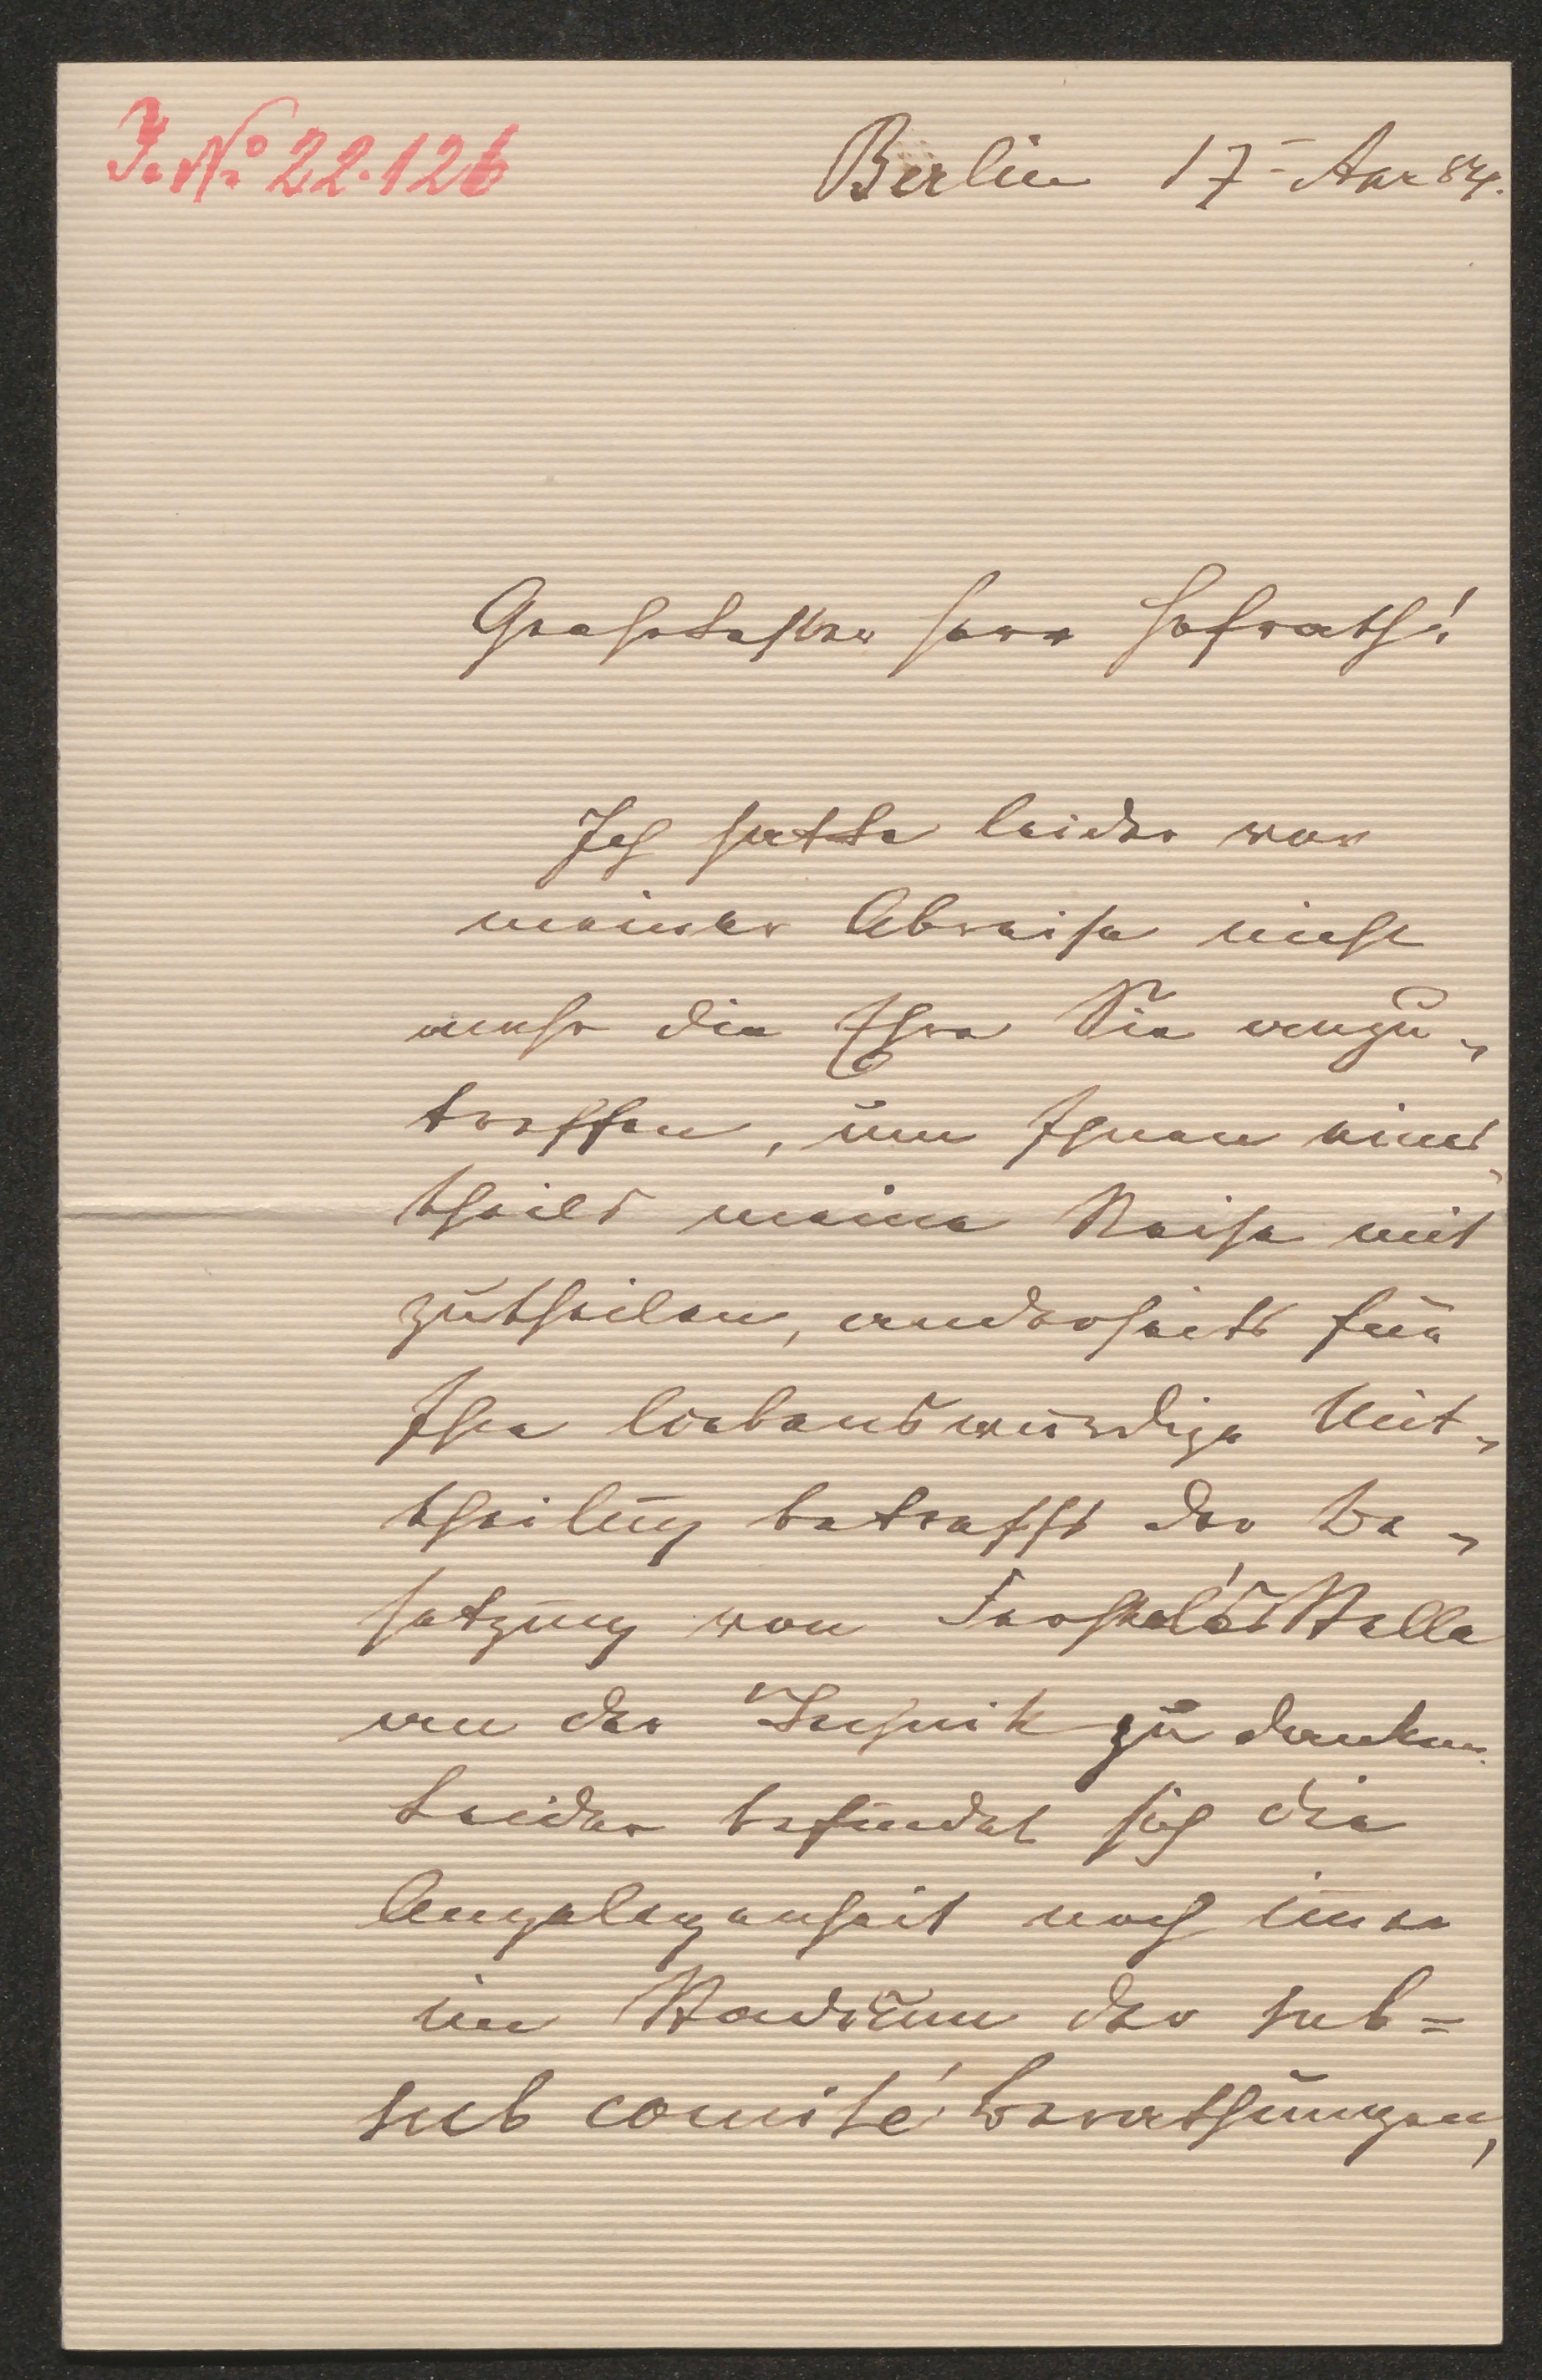 J. No 22.126
Berlin 17-Apr 84.
Geehrtester Herr Hofrath!
Ich hatte leider vor
meiner Abreise nicht
mehr die Ehre Sie anzu-
treffen, um Ihnen eines-
theils meine Reise mit
zutheilen, anderseits für
Ihre liebenswürdige Mit-
theilung betreffs der Be-
setzung von Ferstel's Stelle
an der Technik zu danken.
Leider befindet sich die
Angelegenheit noch imer
im Stadium der sub=
sub comité Berathungen,